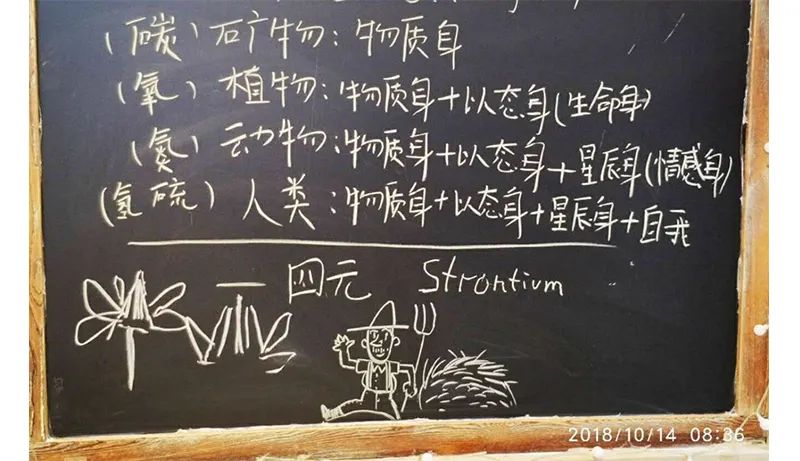 (碳)石矿物:物质身
(氧)植物:物质身+以态身(生命身)
(氮)动物:物质身+以态身+星辰身(情感身)
(氢硫)人类:物质身+以态身+星辰身+自我
一 四元 Strontium
2018/10/14 08:36